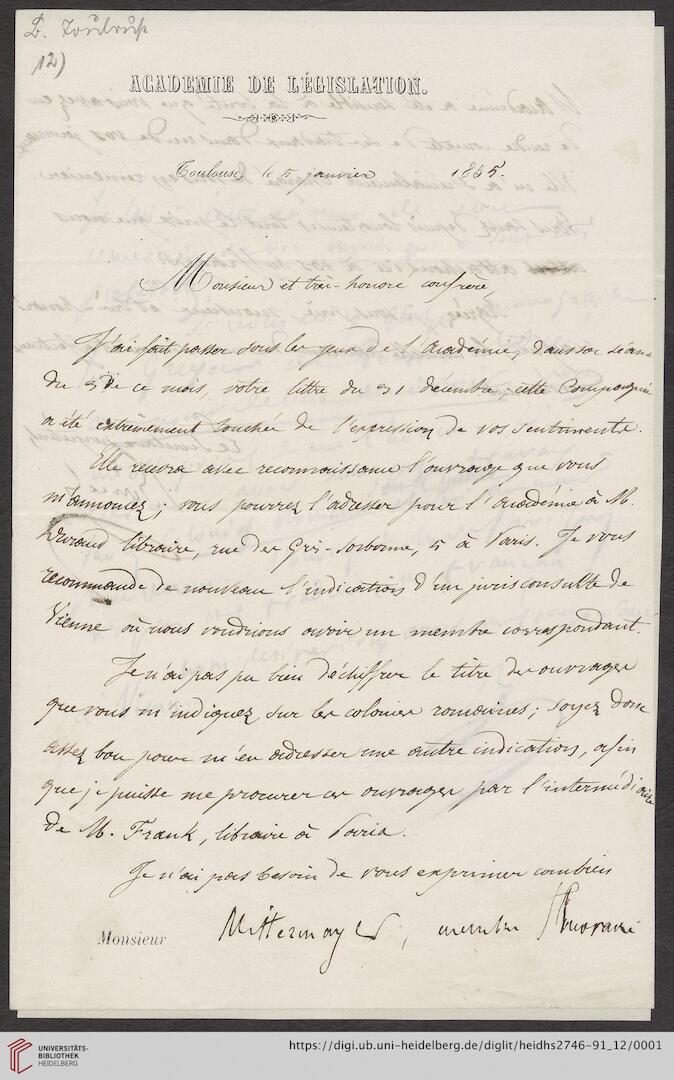 12)
ACADEMIE DE LÉGISLATION.
Toulouse, le 5 janvier 1855.
Monsieur et très-honoré confrère,
J'ai fait passer sous les yeux de l'Académie, dans sa séance
du 3 de ce mois, votre lettre du 31 décembre; cette Compagnie
a été extrêmement touchée de l'expression de vos sentiments.
Elle recevra avec reconnaissance l'ouvrage que vous
m'annoncez; vous pourrez l'adresser pour l'Académie à M.
Durand libraire, rue des Grès-Sorbonne, 5 à Paris. Je vous
recommande de nouveau l'indication d'un jurisconsulte de
Vienne où nous voudrions avoir un membre correspondant.
Je n'ai pas pu bien déchiffrer le titre des ouvrages
que vous m'indiquez sur les colonies romaines; soyez donc
assez bon pour m'en adresser une autre indication, afin
que je puisse me procurer ces ouvrages par l'intermédiaire
de M. Frank, libraire à Paris.
Je n'ai pas besoin de vous exprimer combien
Monsieur Mittermayer, membre honoraire
UNIVERSITÄTS-
BIBLIOTHEK
HEIDELBERG
https://digi.ub.uni-heidelberg.de/diglit/heidhs2746-91_12/0001